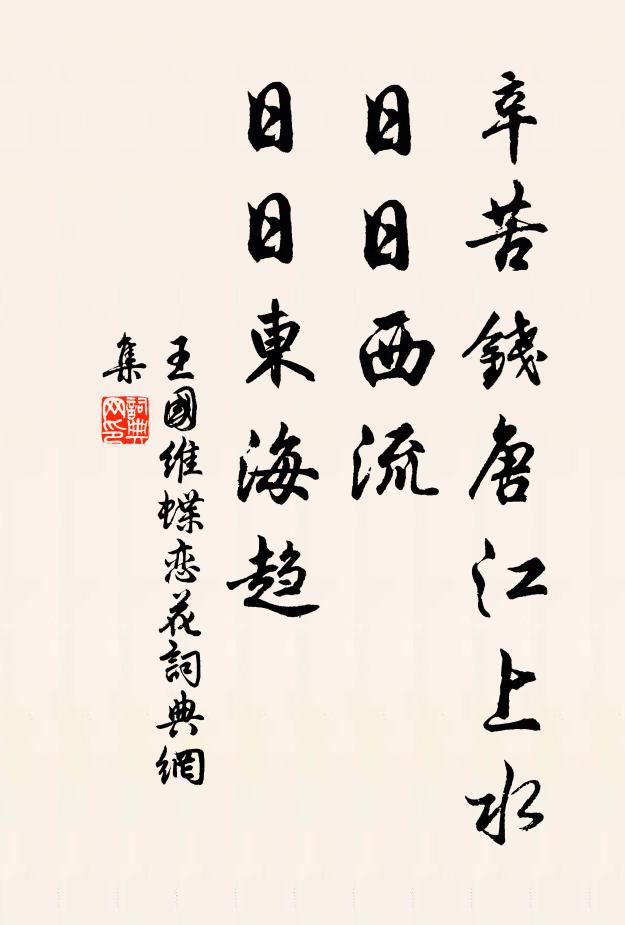 辛苦錢唐江上水
日日西流
日日東海趨
王國維蝶恋花詞典網
集
詞典
网印